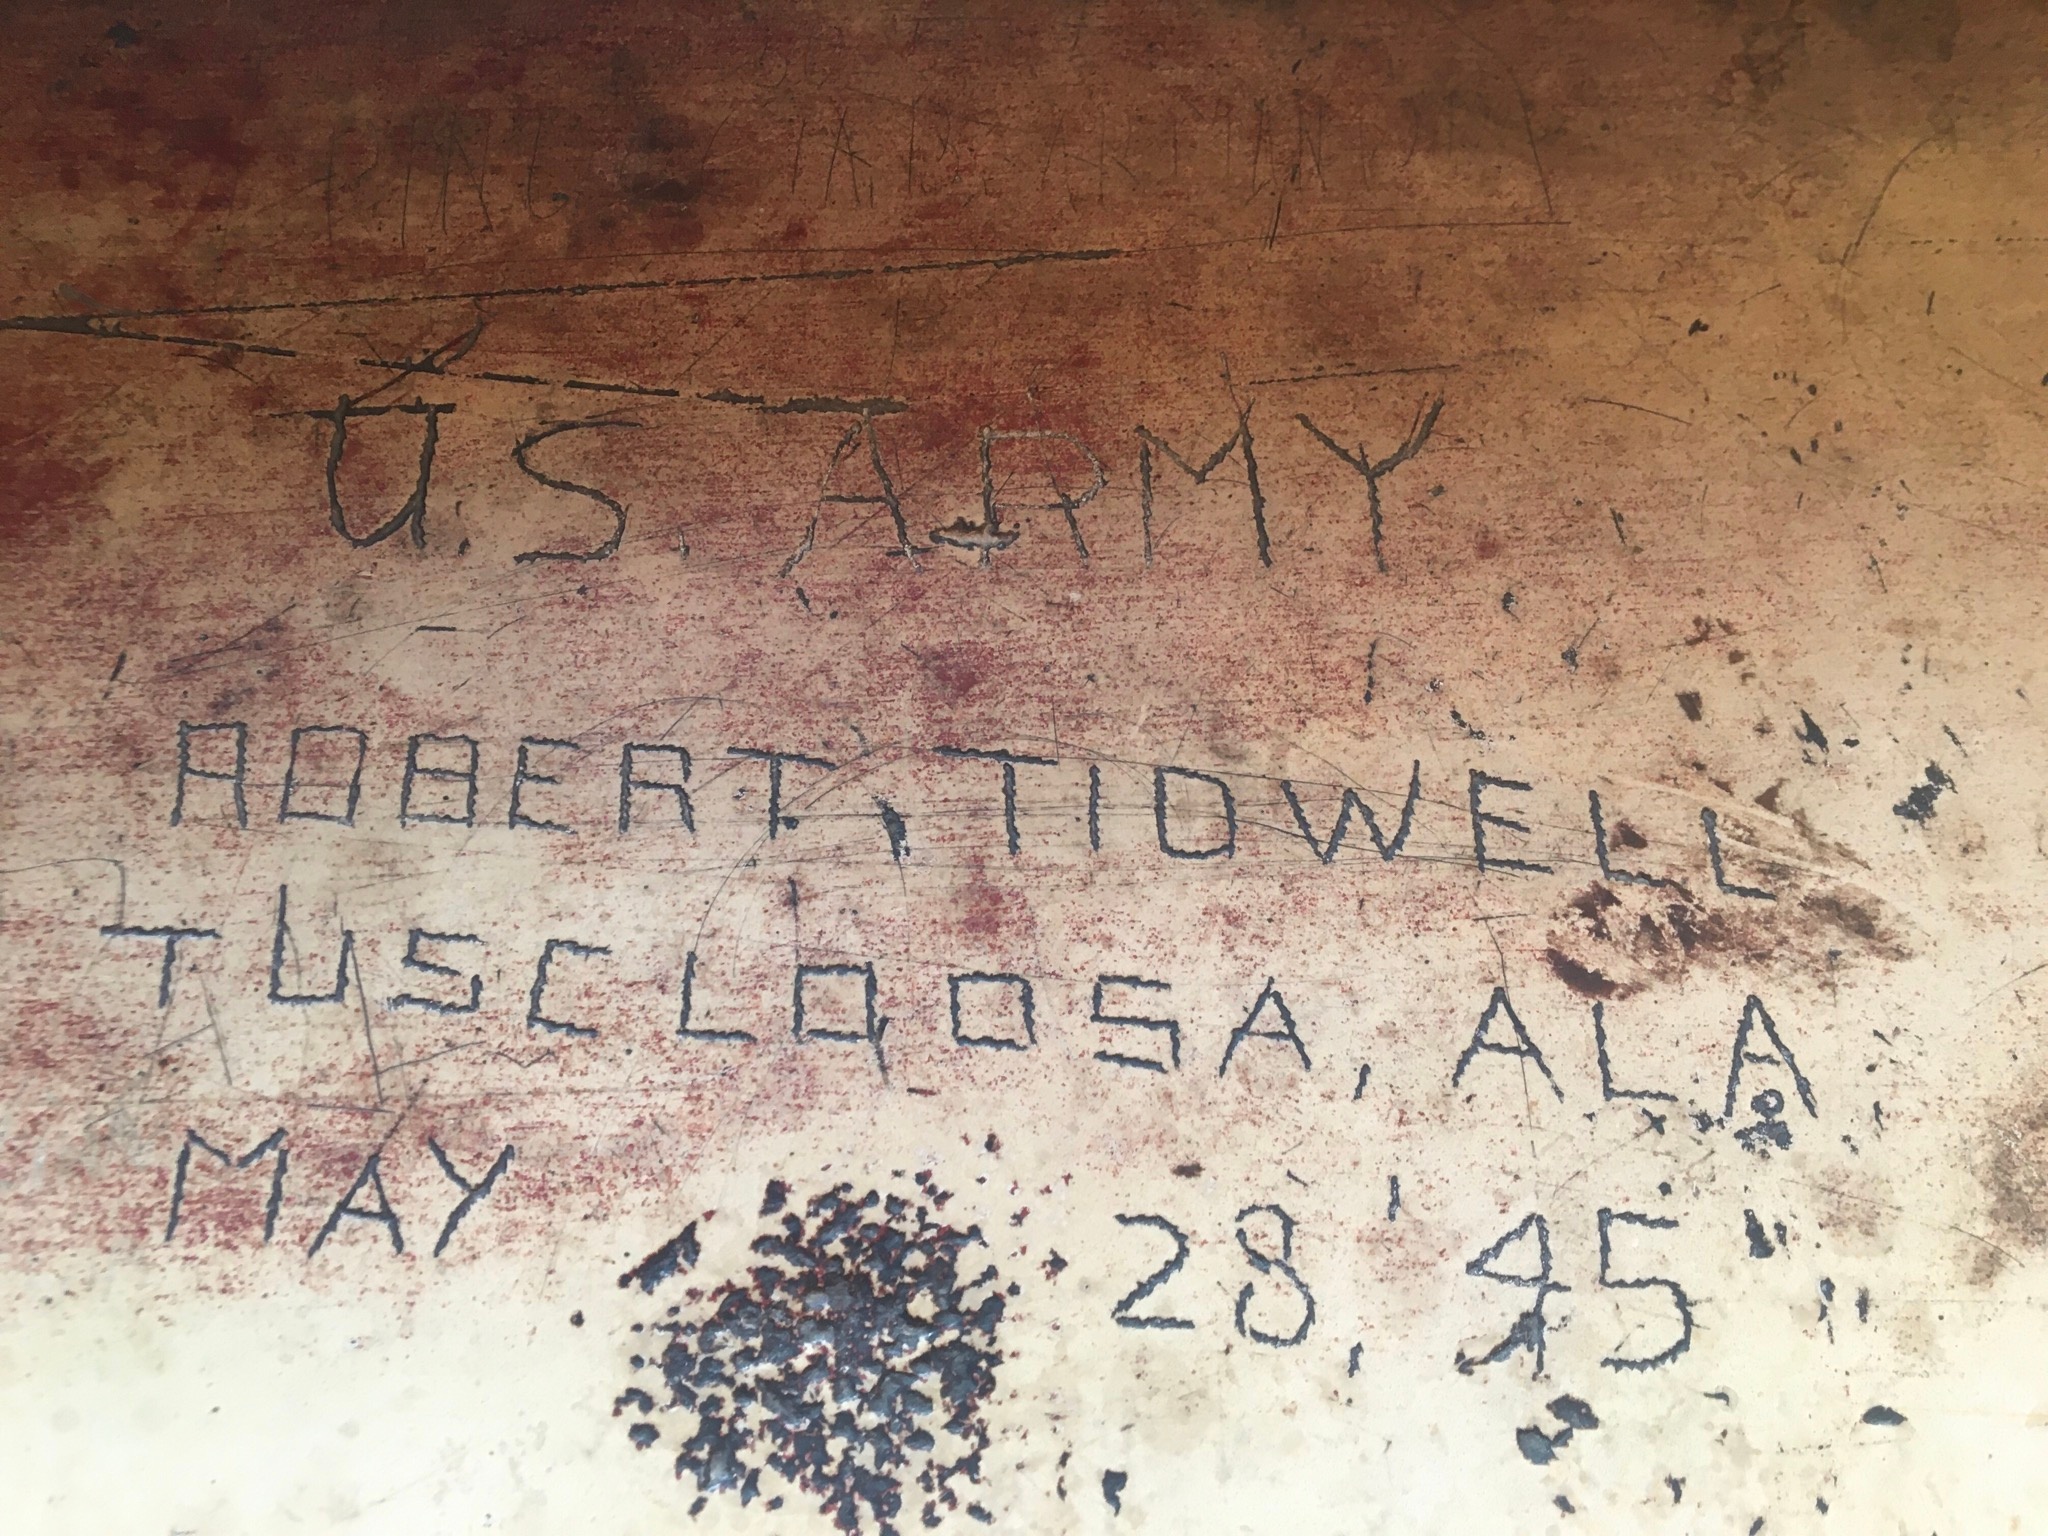 U.S. ARMY
ROBERT, TIDWELL
TUSCLOOSA, ALA
MAY 28, 45